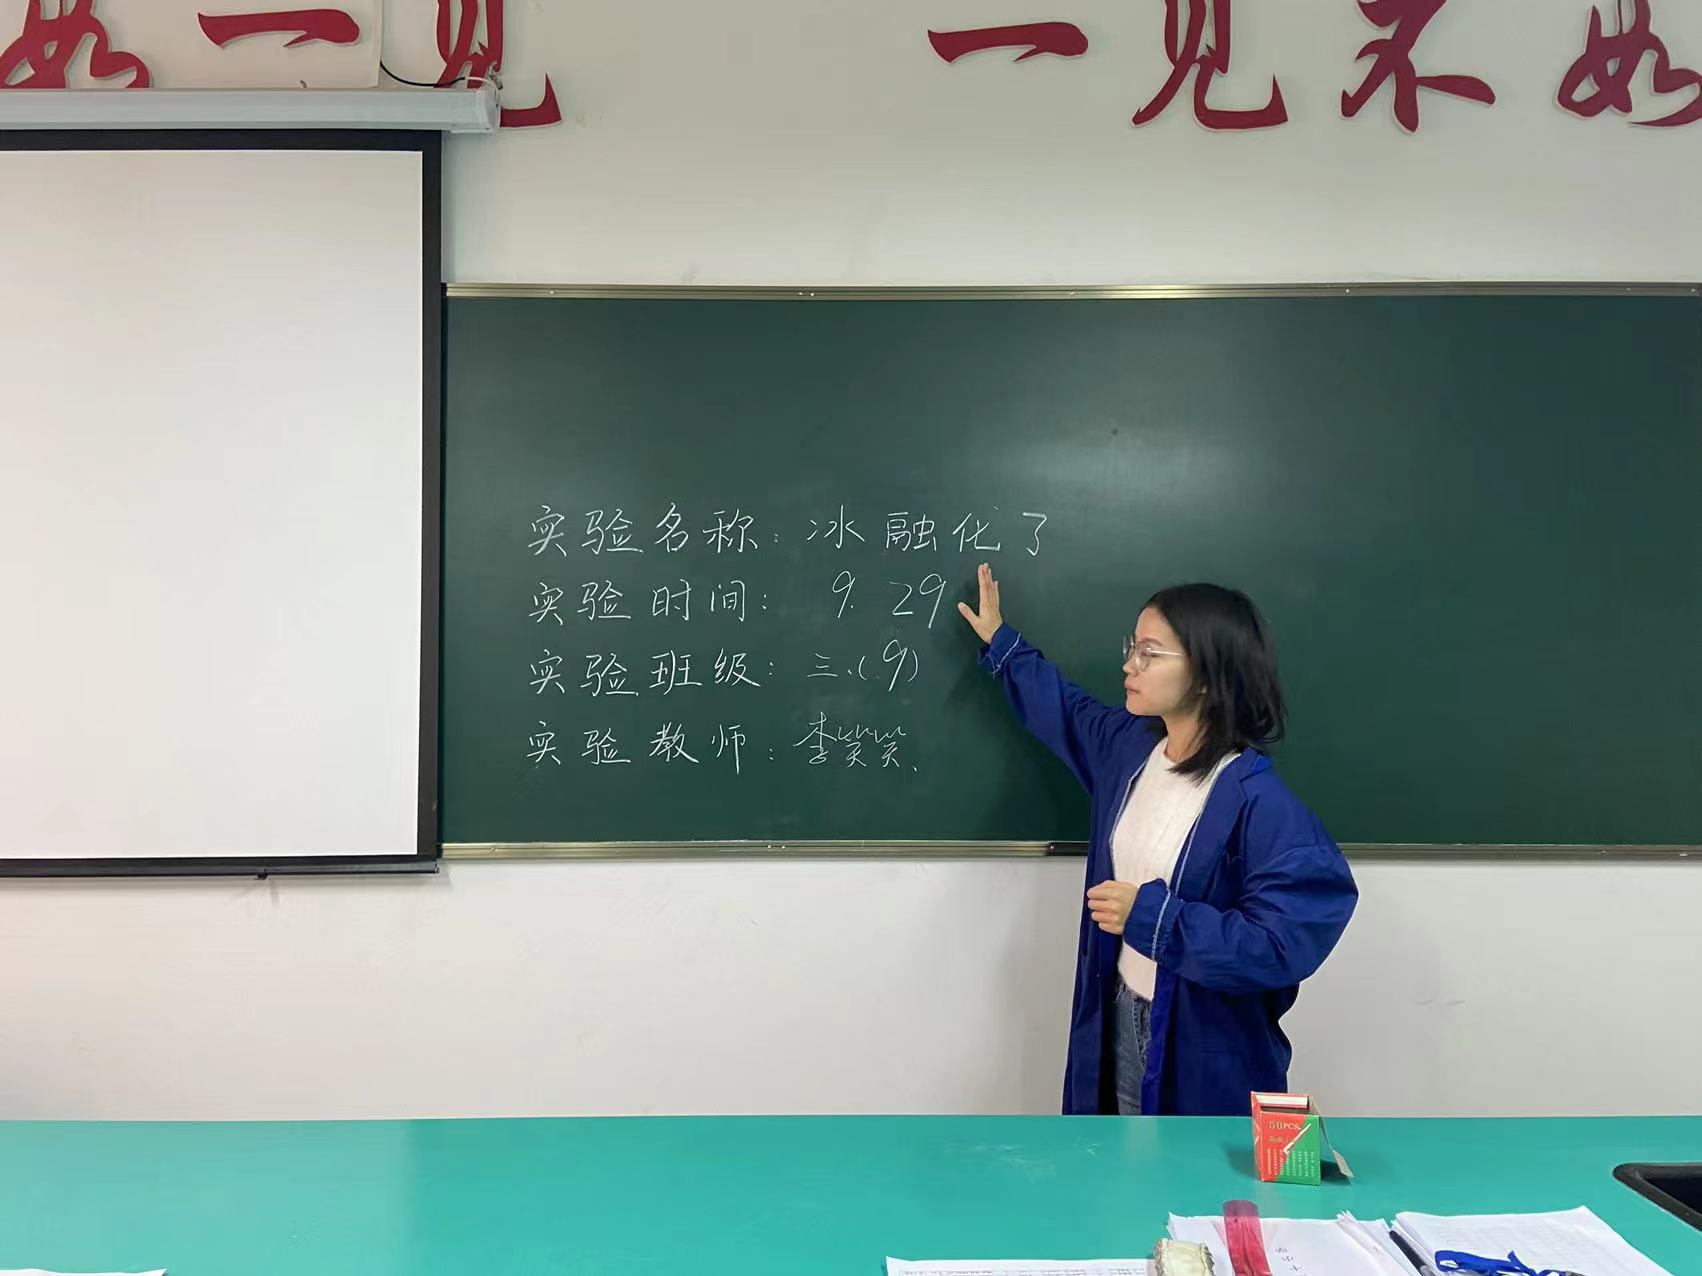 如一见
一见不如
实验名称：冰融化了
实验时间：9. 29
实验班级：三.(9)
实验教师：李笑笑.
50PCS